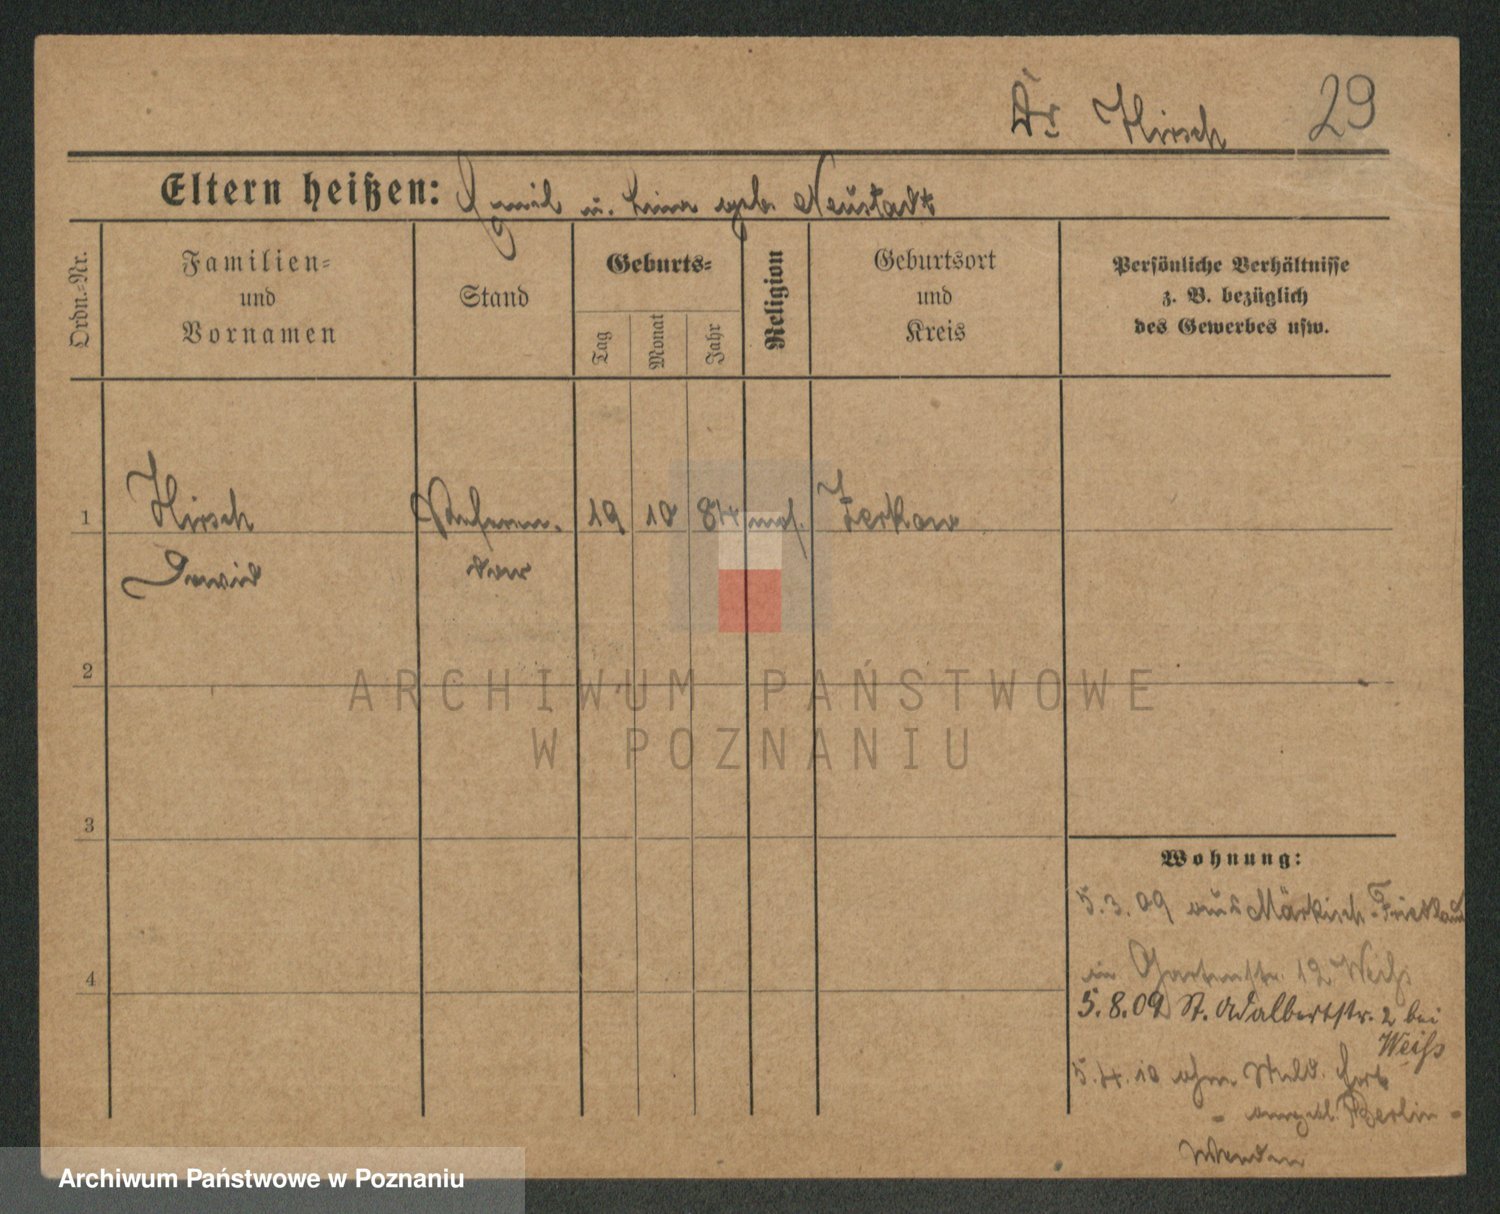 Dr Hirsch 29
Eltern heißen: u. Lina geb. Neustadt
Ordn.-Nr.
Familien-
und
Vornamen
Stand
Geburts-
Tag
Monat
Jahr
Religion
Geburtsort
und
Kreis
Persönliche Verhältnisse
z. B. bezüglich
des Gewerbes usw.
1 Hirsch Referen- 19 10 84 mos. Zerkow
David dar
2
3
4
Wohnung:
5.3.09 aus Märkisch-Friedland
in Gartenstr. 12 Weiß
5.8.09 St. Adalbertstr. 2 bei
Weiß
5.4.10 ohne Meld. fort
- angebl. Berlin -
ARCHIWUM PAŃSTWOWE
W POZNANIU
Archiwum Państwowe w Poznaniu